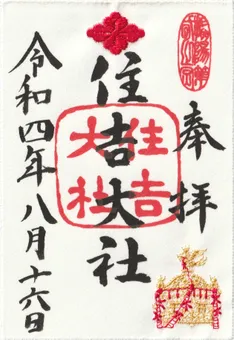 奉拝
住吉大社
住吉大社
令和四年八月十六日